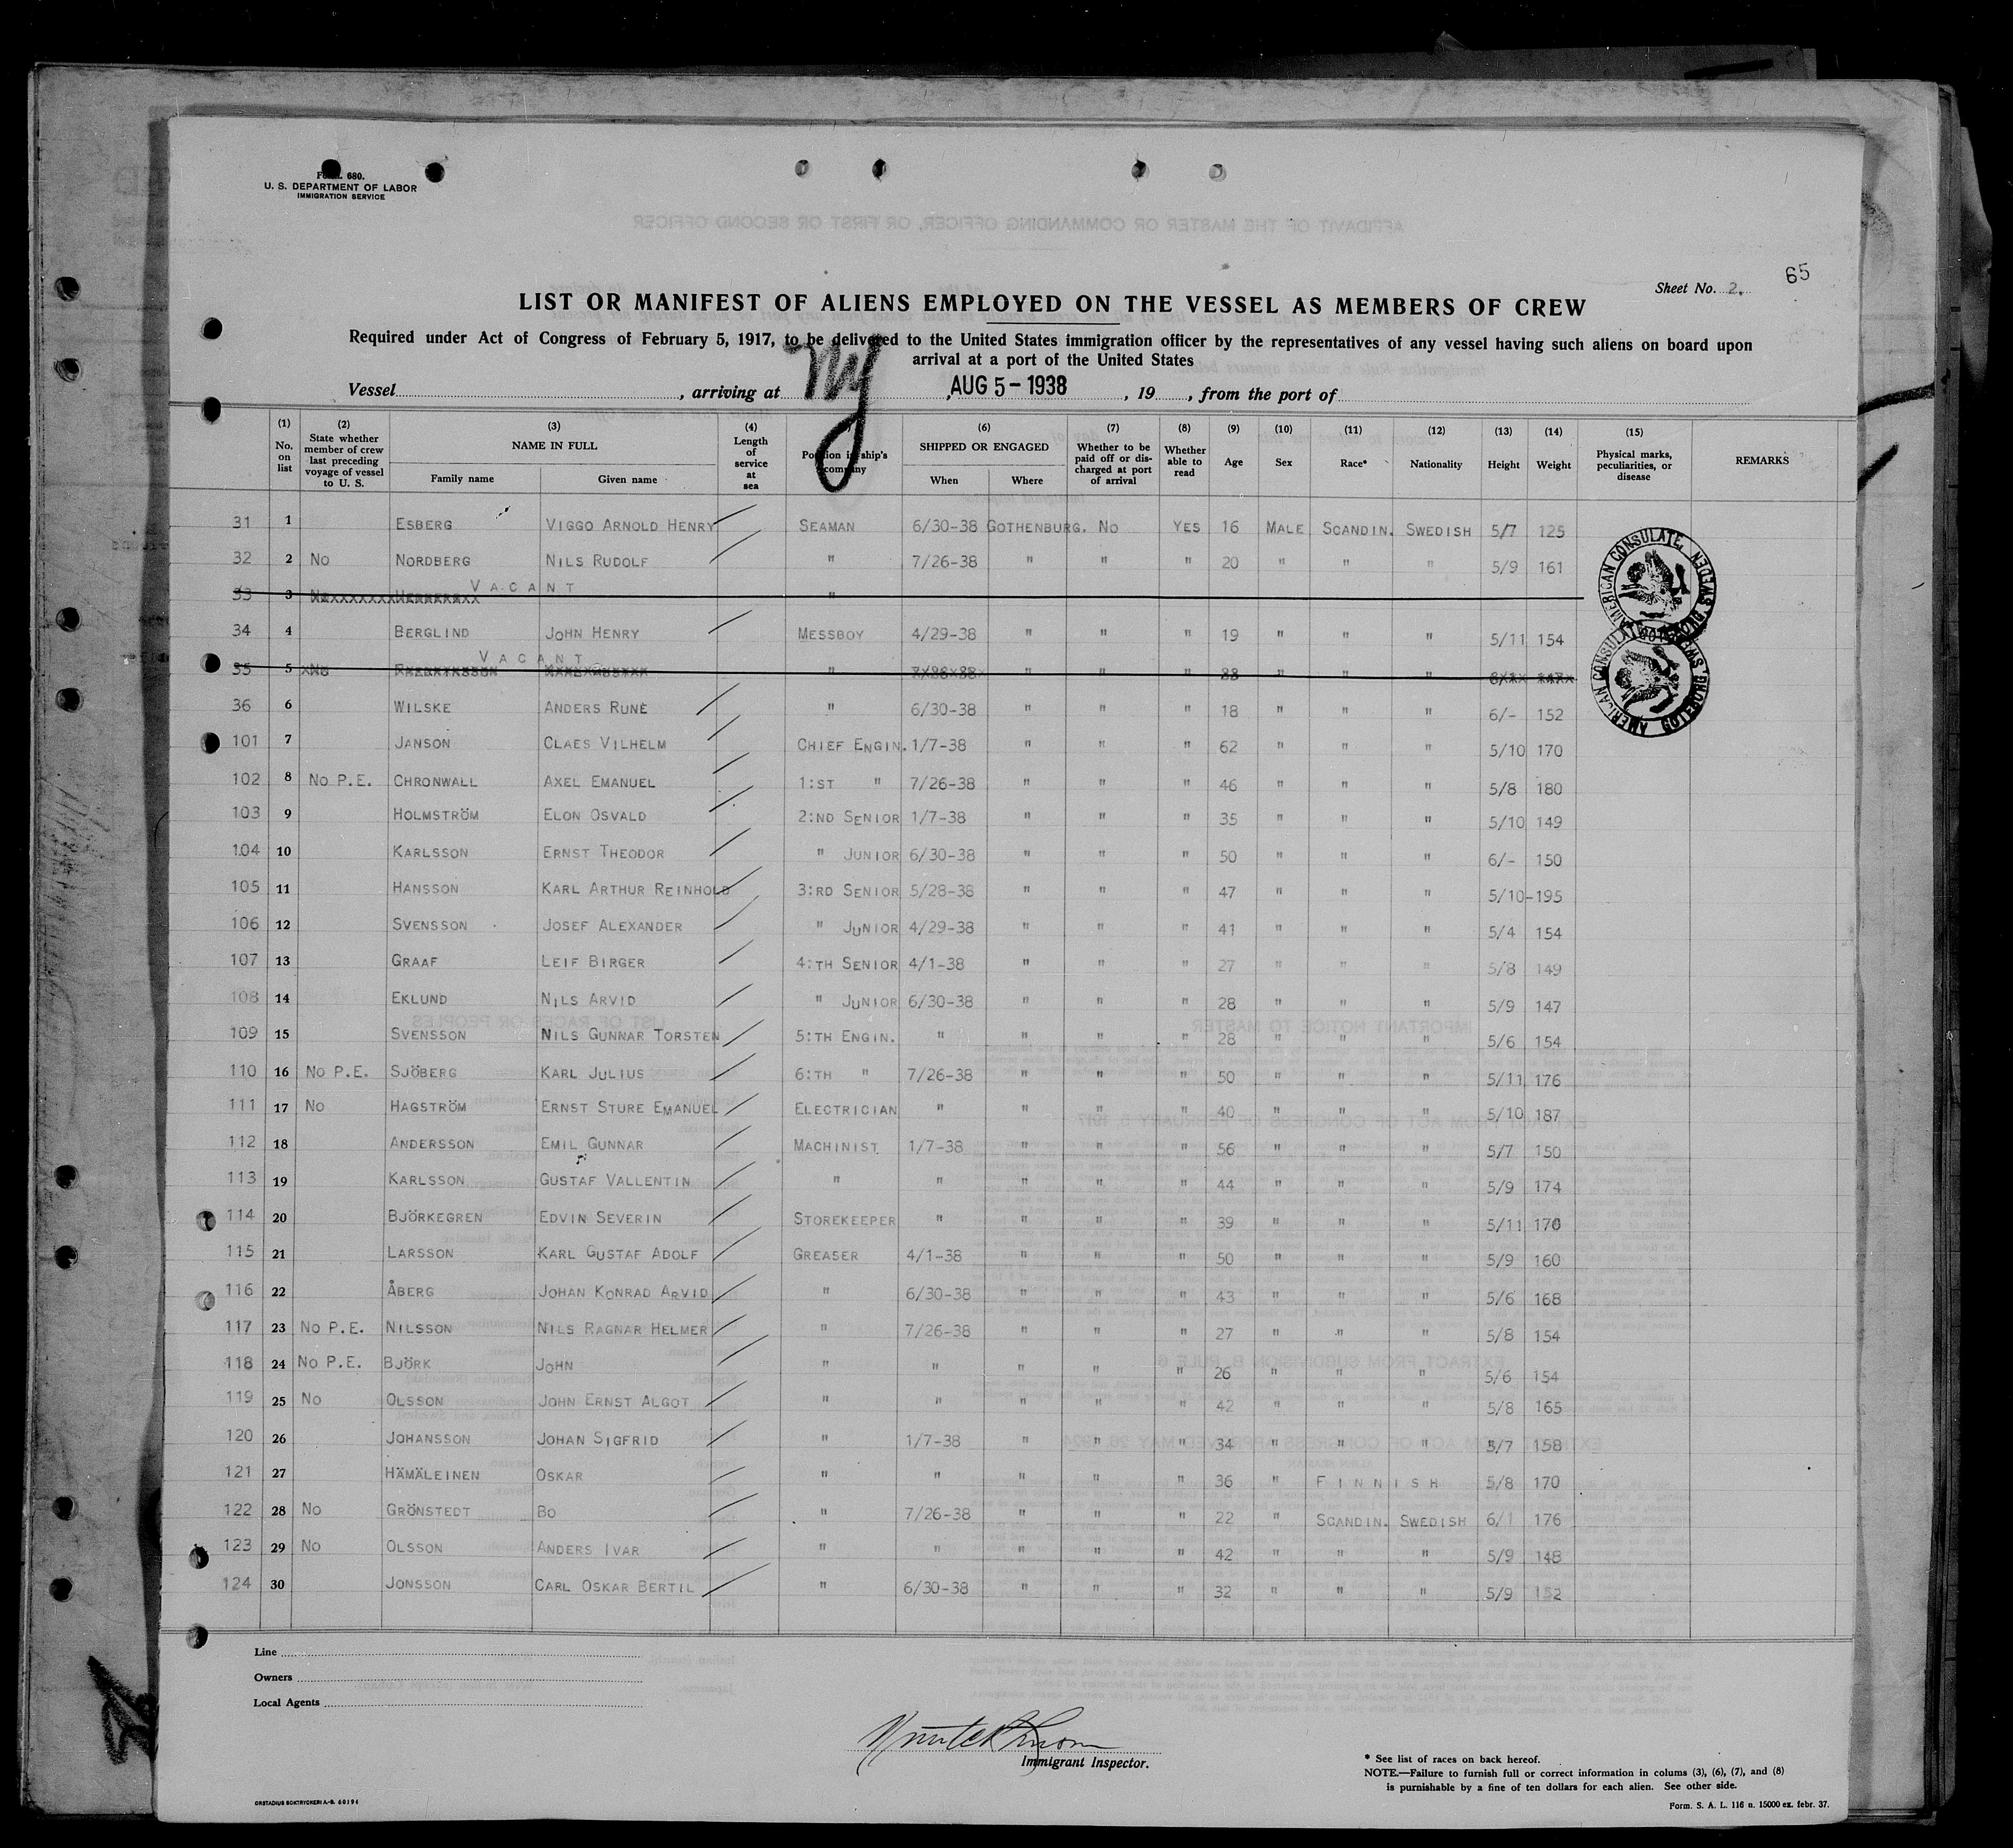 Form. 680.
U. S. DEPARTMENT OF LABOR
IMMIGRATION SERVICE
65
Sheet No. 2.
LIST OR MANIFEST OF ALIENS EMPLOYED ON THE VESSEL AS MEMBERS OF CREW
Required under Act of Congress of February 5, 1917, to be delivered to the United States immigration officer by the representatives of any vessel having such aliens on board upon
arrival at a port of the United States
Vessel , arriving at NY , AUG 5-1938 , 19 , from the port of
(1) No. on list (2) State whether member of crew last preceding voyage of vessel to U. S. (3) NAME IN FULL Family name Given name (4) Length of service at sea Position in ship's company (6) SHIPPED OR ENGAGED When Where (7) Whether to be paid off or discharged at port of arrival (8) Whether able to read (9) Age (10) Sex (11) Race* (12) Nationality (13) Height (14) Weight (15) Physical marks, peculiarities, or disease REMARKS
31 1 ESBERG VIGGO ARNOLD HENRY SEAMAN 6/30-38 GOTHENBURG. NO YES 16 MALE SCANDIN. SWEDISH 5/7 125
32 2 NO NORDBERG NILS RUDOLF " 7/26-38 " " " 20 " " " 5/9 161
33 3 VACANT "
34 4 BERGLIND JOHN HENRY MESSBOY 4/29-38 " " " 19 " " " 5/11 154
35 5 NO VACANT " " " " " " "
36 6 WILSKE ANDERS RUNE " 6/30-38 " " " 18 " " " 6/- 152
101 7 JANSON CLAES VILHELM CHIEF ENGIN. 1/7-38 " " " 62 " " " 5/10 170
102 8 NO P.E. CHRONWALL AXEL EMANUEL 1:ST " 7/26-38 " " " 46 " " " 5/8 180
103 9 HOLMSTRÖM ELON OSVALD 2:ND SENIOR 1/7-38 " " " 35 " " " 5/10 149
104 10 KARLSSON ERNST THEODOR " JUNIOR 6/30-38 " " " 50 " " " 6/- 150
105 11 HANSSON KARL ARTHUR REINHOLD 3:RD SENIOR 5/28-38 " " " 47 " " " 5/10-195
106 12 SVENSSON JOSEF ALEXANDER " JUNIOR 4/29-38 " " " 41 " " " 5/4 154
107 13 GRAAF LEIF BIRGER 4:TH SENIOR 4/1-38 " " " 27 " " " 5/8 149
108 14 EKLUND NILS ARVID " JUNIOR 6/30-38 " " " 28 " " " 5/9 147
109 15 SVENSSON NILS GUNNAR TORSTEN 5:TH ENGIN. " " " " 28 " " " 5/6 154
110 16 NO P.E. SJÖBERG KARL JULIUS 6:TH " 7/26-38 " " " 50 " " " 5/11 176
111 17 NO HAGSTRÖM ERNST STURE EMANUEL ELECTRICIAN " " " " 40 " " " 5/10 187
112 18 ANDERSSON EMIL GUNNAR MACHINIST 1/7-38 " " " 56 " " " 5/7 150
113 19 KARLSSON GUSTAF VALLENTIN " " " " " 44 " " " 5/9 174
114 20 BJÖRKEGREN EDVIN SEVERIN STOREKEEPER " " " " 39 " " " 5/11 170
115 21 LARSSON KARL GUSTAF ADOLF GREASER 4/1-38 " " " 50 " " " 5/9 160
116 22 ÅBERG JOHAN KONRAD ARVID " 6/30-38 " " " 43 " " " 5/6 168
117 23 NO P.E. NILSSON NILS RAGNAR HELMER " 7/26-38 " " " 27 " " " 5/8 154
118 24 NO P.E. BJÖRK JOHN " " " " " 26 " " " 5/6 154
119 25 NO OLSSON JOHN ERNST ALGOT " " " " " 42 " " " 5/8 165
120 26 JOHANSSON JOHAN SIGFRID " 1/7-38 " " " 34 " " " 5/7 158
121 27 HÄMÄLEINEN OSKAR " " " " " 36 " FINNISH 5/8 170
122 28 NO GRÖNSTEDT BO " 7/26-38 " " " 22 " SCANDIN. SWEDISH 6/1 176
123 29 NO OLSSON ANDERS IVAR " " " " " 42 " " " 5/9 148
124 30 JONSSON CARL OSKAR BERTIL " 6/30-38 " " " 32 " " " 5/9 152
AMERICAN CONSULATE GOTHENBURG SWEDEN
AMERICAN CONSULATE GOTHENBURG SWEDEN
Line
Owners
Local Agents
Immigrant Inspector.
* See list of races on back hereof.
NOTE.—Failure to furnish full or correct information in colums (3), (6), (7), and (8)
is purnishable by a fine of ten dollars for each alien. See other side.
ORSTADIUS BOKTRYCKERI A.-B. 60196
Form. S. A. L. 116 n. 15000 ex. febr. 37.